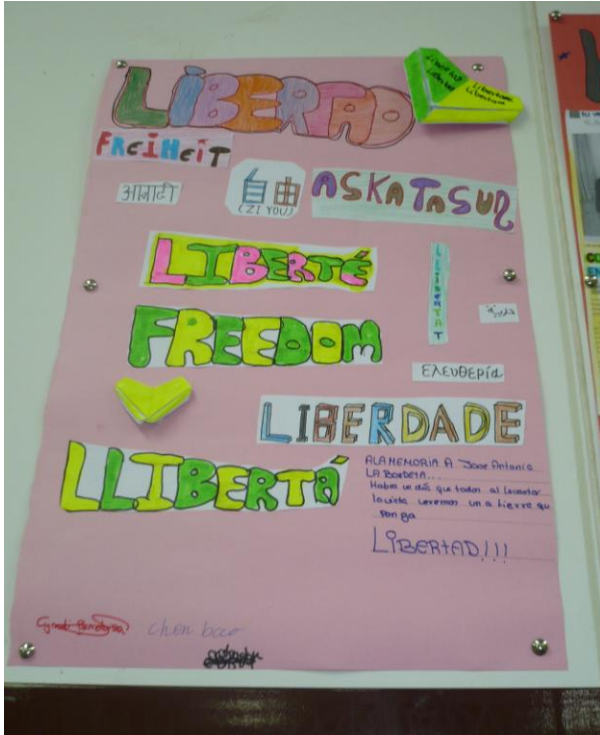 LIBERTAD
FREIHEIT
自由
(ZI YOU)
ASKATASUN
LIBERTÉ
LLIBERTAT
FREEDOM
ελευθερία
LIBERDADE
LLIBERTÁ
A LA MEMORIA A Jose Antonio
LA BORDETA...
Habra un día que todos al levantar
la vista veremos una tierra que
ponga
LIBERTAD!!!
chen bao